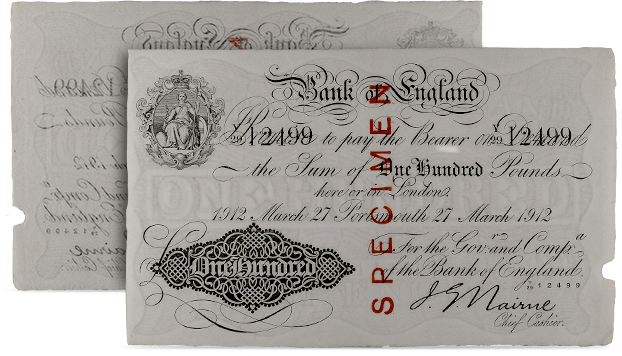 Bank of England
Y/29 12499 Y/29 12499
Promise to pay the Bearer on Demand
the Sum of One Hundred Pounds
here or in London.
1912 March 27 Portsmouth 27 March 1912
For the Gov.r and Comp.a
of the Bank of England.
Y/29 12499
One Hundred
J. G. Nairne
Chief Cashier.
SPECIMEN